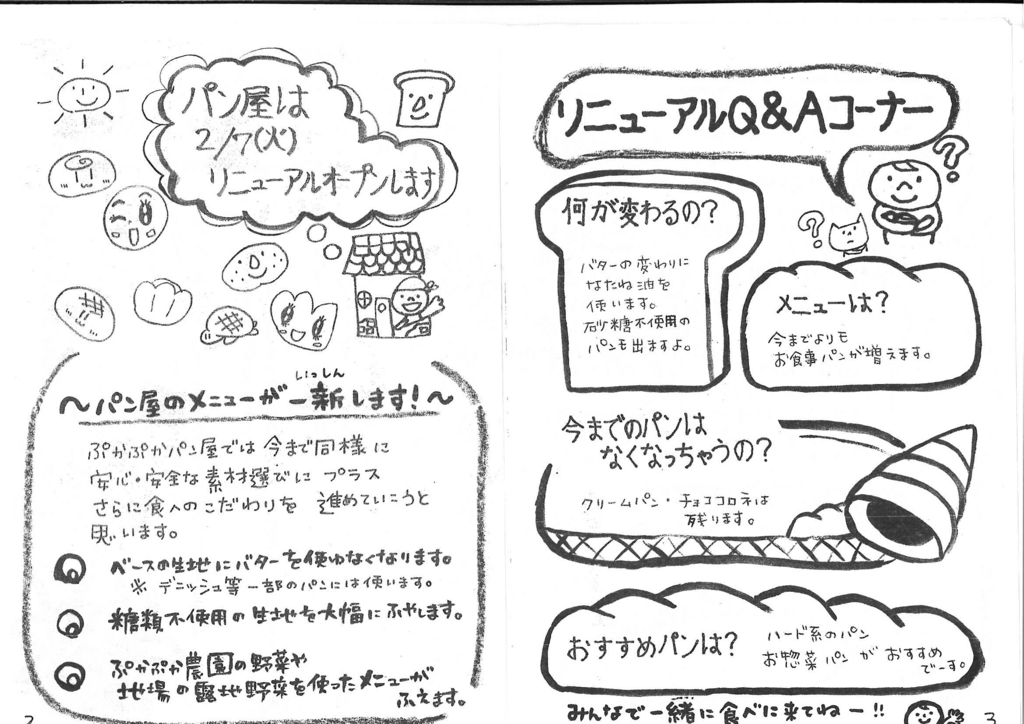 パン屋は
2/7(火)
リニューアルオープンします
いっしん
～パン屋のメニューが一新します！～
ぷかぷかパン屋では今まで同様に
安心・安全な素材選びに プラス
さらに食へのこだわりを 進めていこうと
思います。
ベースの生地にバターを使わなくなります。
※ デニッシュ等一部のパンには使います。
糖類不使用の生地を大幅にふやします。
ぷかぷか農園の野菜や
地場の露地野菜を使ったメニューが
ふえます。
2
リニューアルQ&Aコーナー
何が変わるの？
バターの変わりに
なたね油を
使います。
砂糖不使用の
パンも出ますよ。
メニューは？
今までよりも
お食事パンが増えます。
今までのパンは
なくなっちゃうの？
クリームパン・チョココロネは
残ります。
おすすめパンは？
ハード系のパン
お惣菜パンが おすすめ
でーす。
みんなで一緒に食べに来てねー!!
3